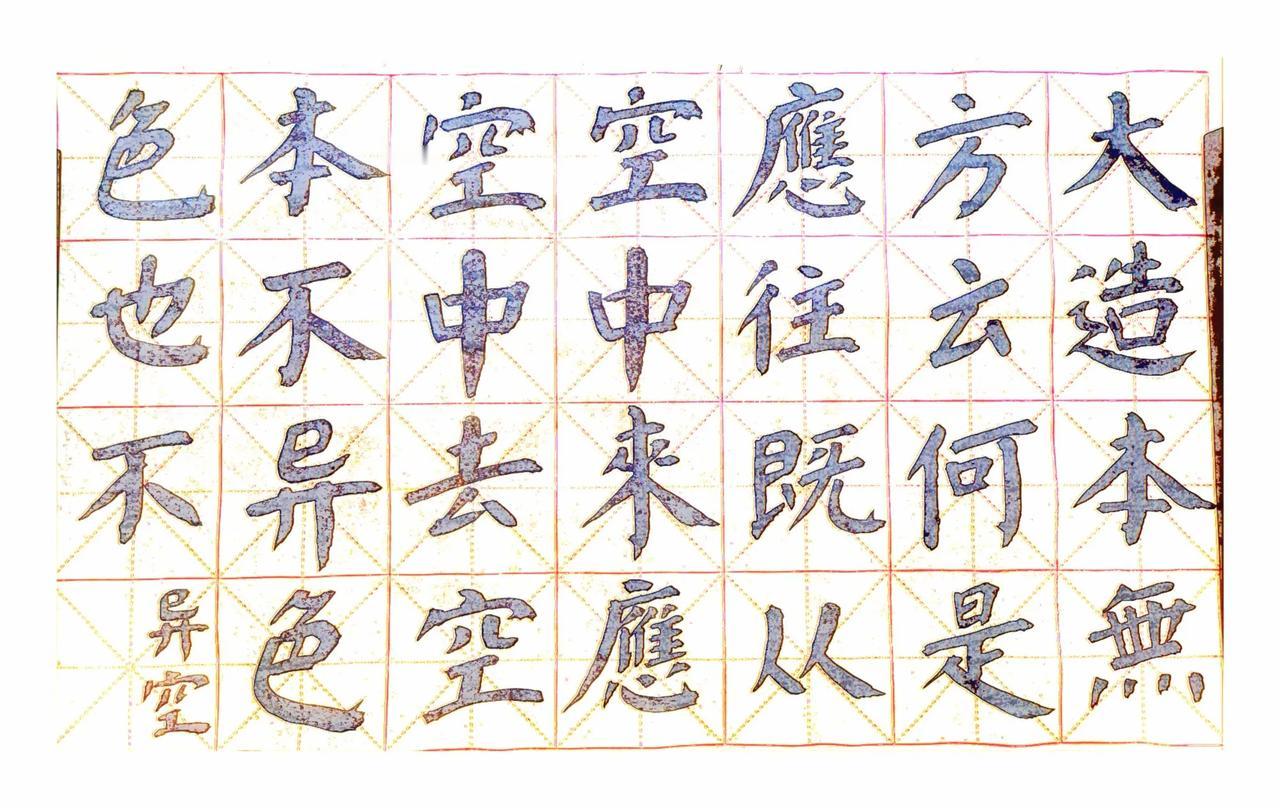 大造本無
方云何是
應往既从
空中來應
空中去空
本不异色
色也不异空